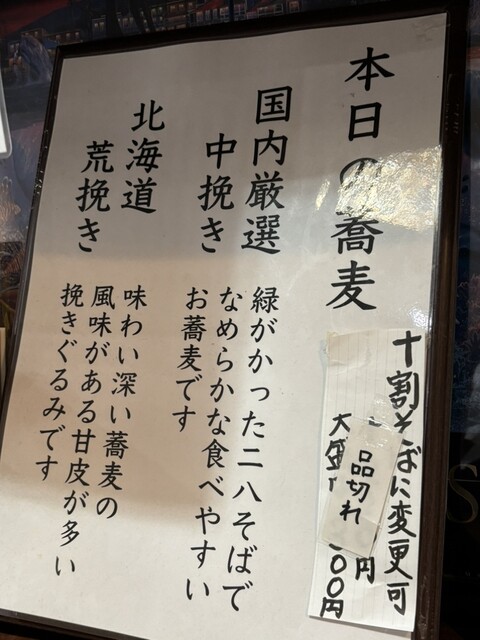 本日の蕎麦
十割そばに変更可
円
大盛
00円
品切れ
国内厳選
中挽き
緑がかった二八そばで
なめらかな食べやすい
お蕎麦です
北海道
荒挽き
味わい深い蕎麦の
風味がある甘皮が多い
挽きぐるみです